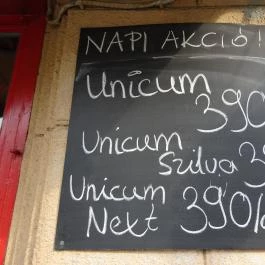 NAPI AKCIÓ!
Unicum
390
Unicum
Szilva 3
Unicum
Next 390